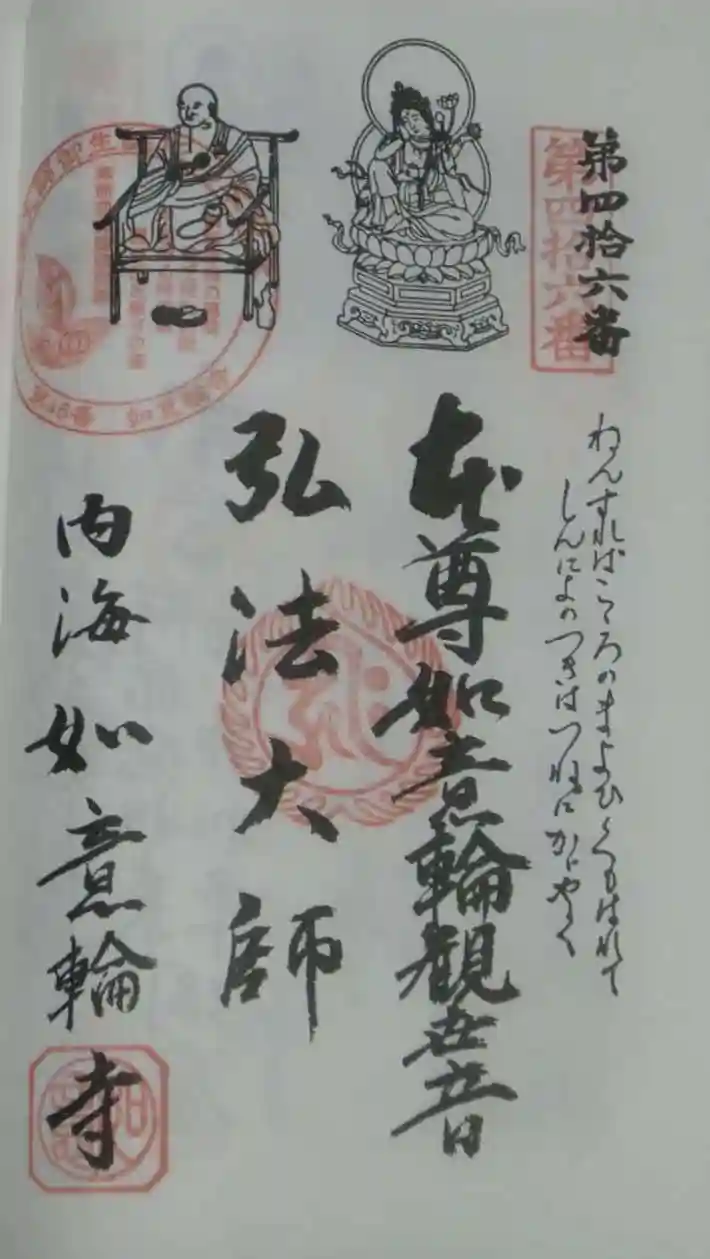 第四拾六番
第四拾六番
ねんずればこころのまよひくもはれて
しんによのつきはつねにかゞやく
本尊如意輪觀世音
弘法大師
内海如意輪寺
第46番 如意輪寺